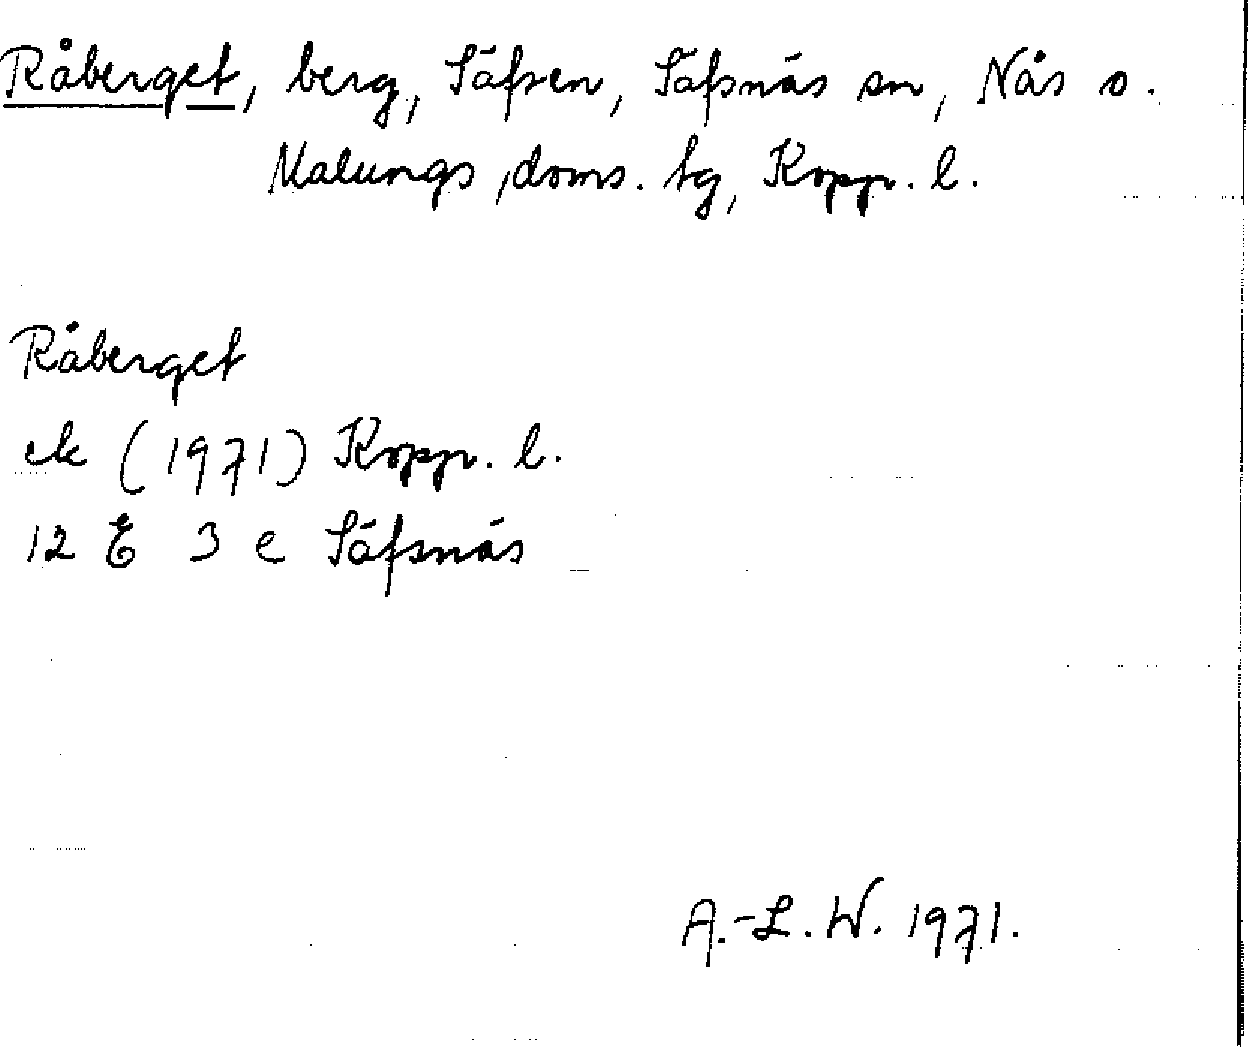 Råberget, berg, Säfsen, Säfsnäs sn, Nås o.
Malungs doms. tg, Kopp. l.
Råberget
ek (1971) Kopp. l.
12 E 3 e Säfsnäs
A.-L. W. 1971.